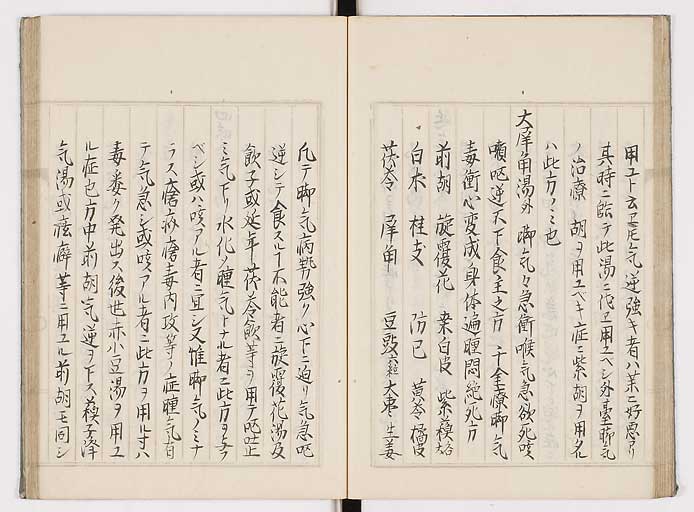 用ユト云ヱ𪜈气逆強キ者ハ茱ニ好悪アリ
其時ニ臨テ此湯ニ代ヱ用ユベシ外臺脚气
ノ治療胡ヲ用ユベキ症ニ紫胡ヲ用タル
ハ此方ノミ也
大犀角湯外 脚气々急衝喉气急欲死咳
嗽嘔逆不下食主之方 千金療脚气
毒衝心変成身体遍腫悶絶死方
前胡 旋覆花 桑白皮 紫蘓
白木 桂支 防已 黄芩 橘皮
茯苓 犀角 豆豉 大枣 生姜
凡テ脚气病勢強ク心下ニ迫リ气急嘔
逆シテ食スルヿ不能者ニ旋覆花湯及
飲子或延年茯苓飲等ヲ用テ嘔止
ミ气下リ水化ノ腫气トナル者ニ此方ヲ与フ
ベシ或ハ咳アル者ニ宜シ又惟脚气ノミナ
ラス瘡疥瘡毒内攻等ノ症腫气有
テ气急シ或咳アル者ニ此方ヲ用ル寸ハ
毒悉ク発出ス後世赤小豆湯ヲ用ユ
ル症也方中前胡气逆ヲ下ス蘓子降
气湯或痃癖等ニ用ユル前胡モ同シ